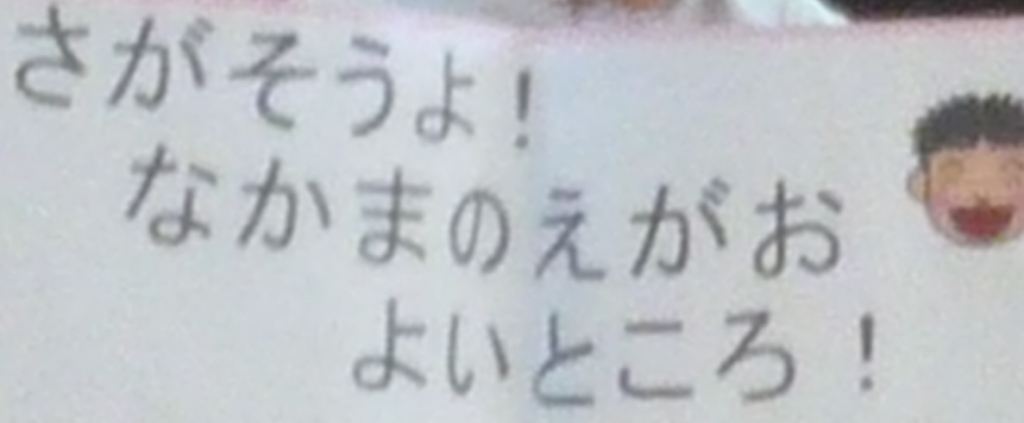 さがそうよ!
なかまのえがお
よいところ!